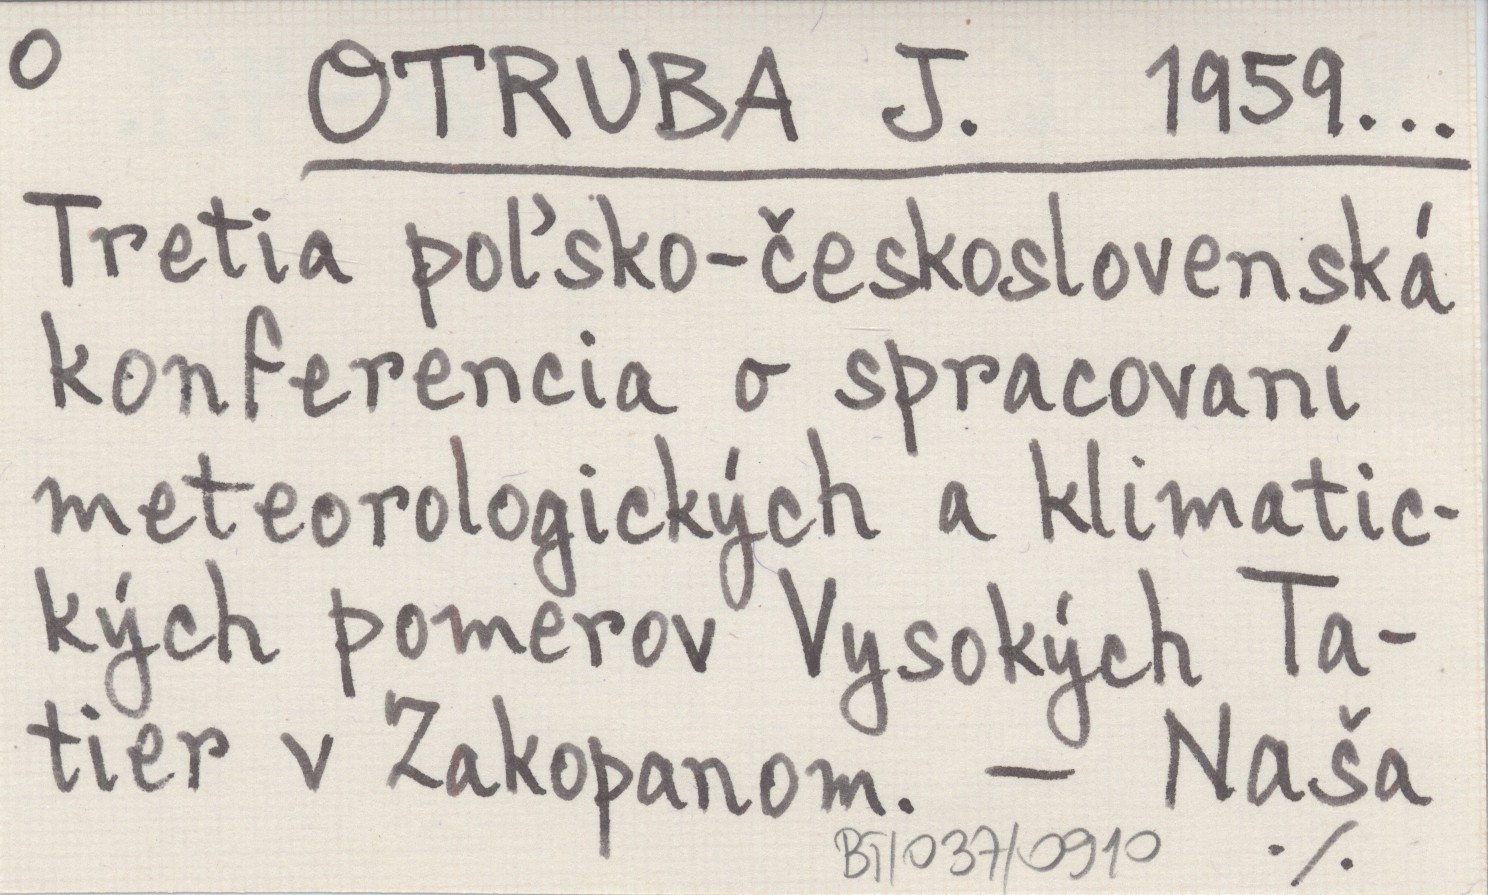 O OTRUBA J. 1959...
Tretia poľsko-československá
konferencia o spracovaní
meteorologických a klimatic-
kých pomerov Vysokých Ta-
tier v Zakopanom. — Naša
BT/037/0910 ./.